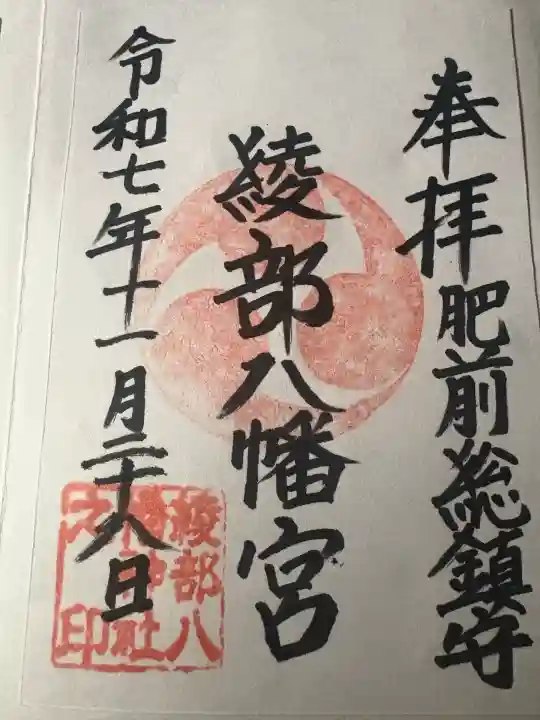 奉拝 肥前総鎮守
綾部八幡宮
令和七年十一月二十八日
綾部八
幡神社
之印